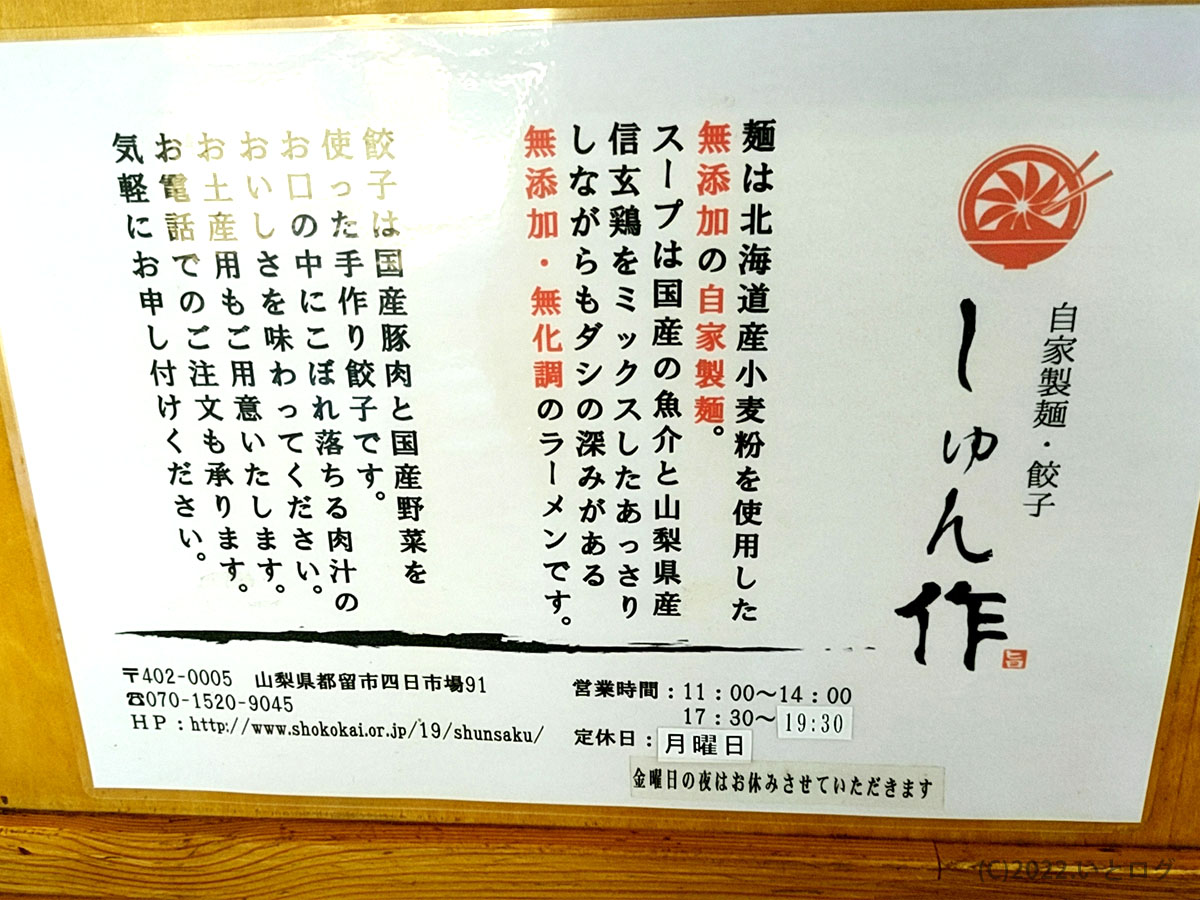 自家製麺・餃子
しゅん作
旨
麺は北海道産小麦粉を使用した
無添加の自家製麺。
スープは国産の魚介と山梨県産
信玄鶏をミックスしたあっさり
しながらもダシの深みがある
無添加・無化調のラーメンです。
餃子は国産豚肉と国産野菜を
使った手作り餃子です。
お口の中にこぼれ落ちる肉汁の
おいしさを味わってください。
お土産用もご用意いたします。
お電話でのご注文も承ります。
気軽にお申し付けください。
〒402-0005 山梨県都留市四日市場91
☎070-1520-9045
HP:http://www.shokokai.or.jp/19/shunsaku/
営業時間:11:00～14:00
17:30～19:30
定休日:月曜日
金曜日の夜はお休みさせていただきます
(C)2022.いとログ